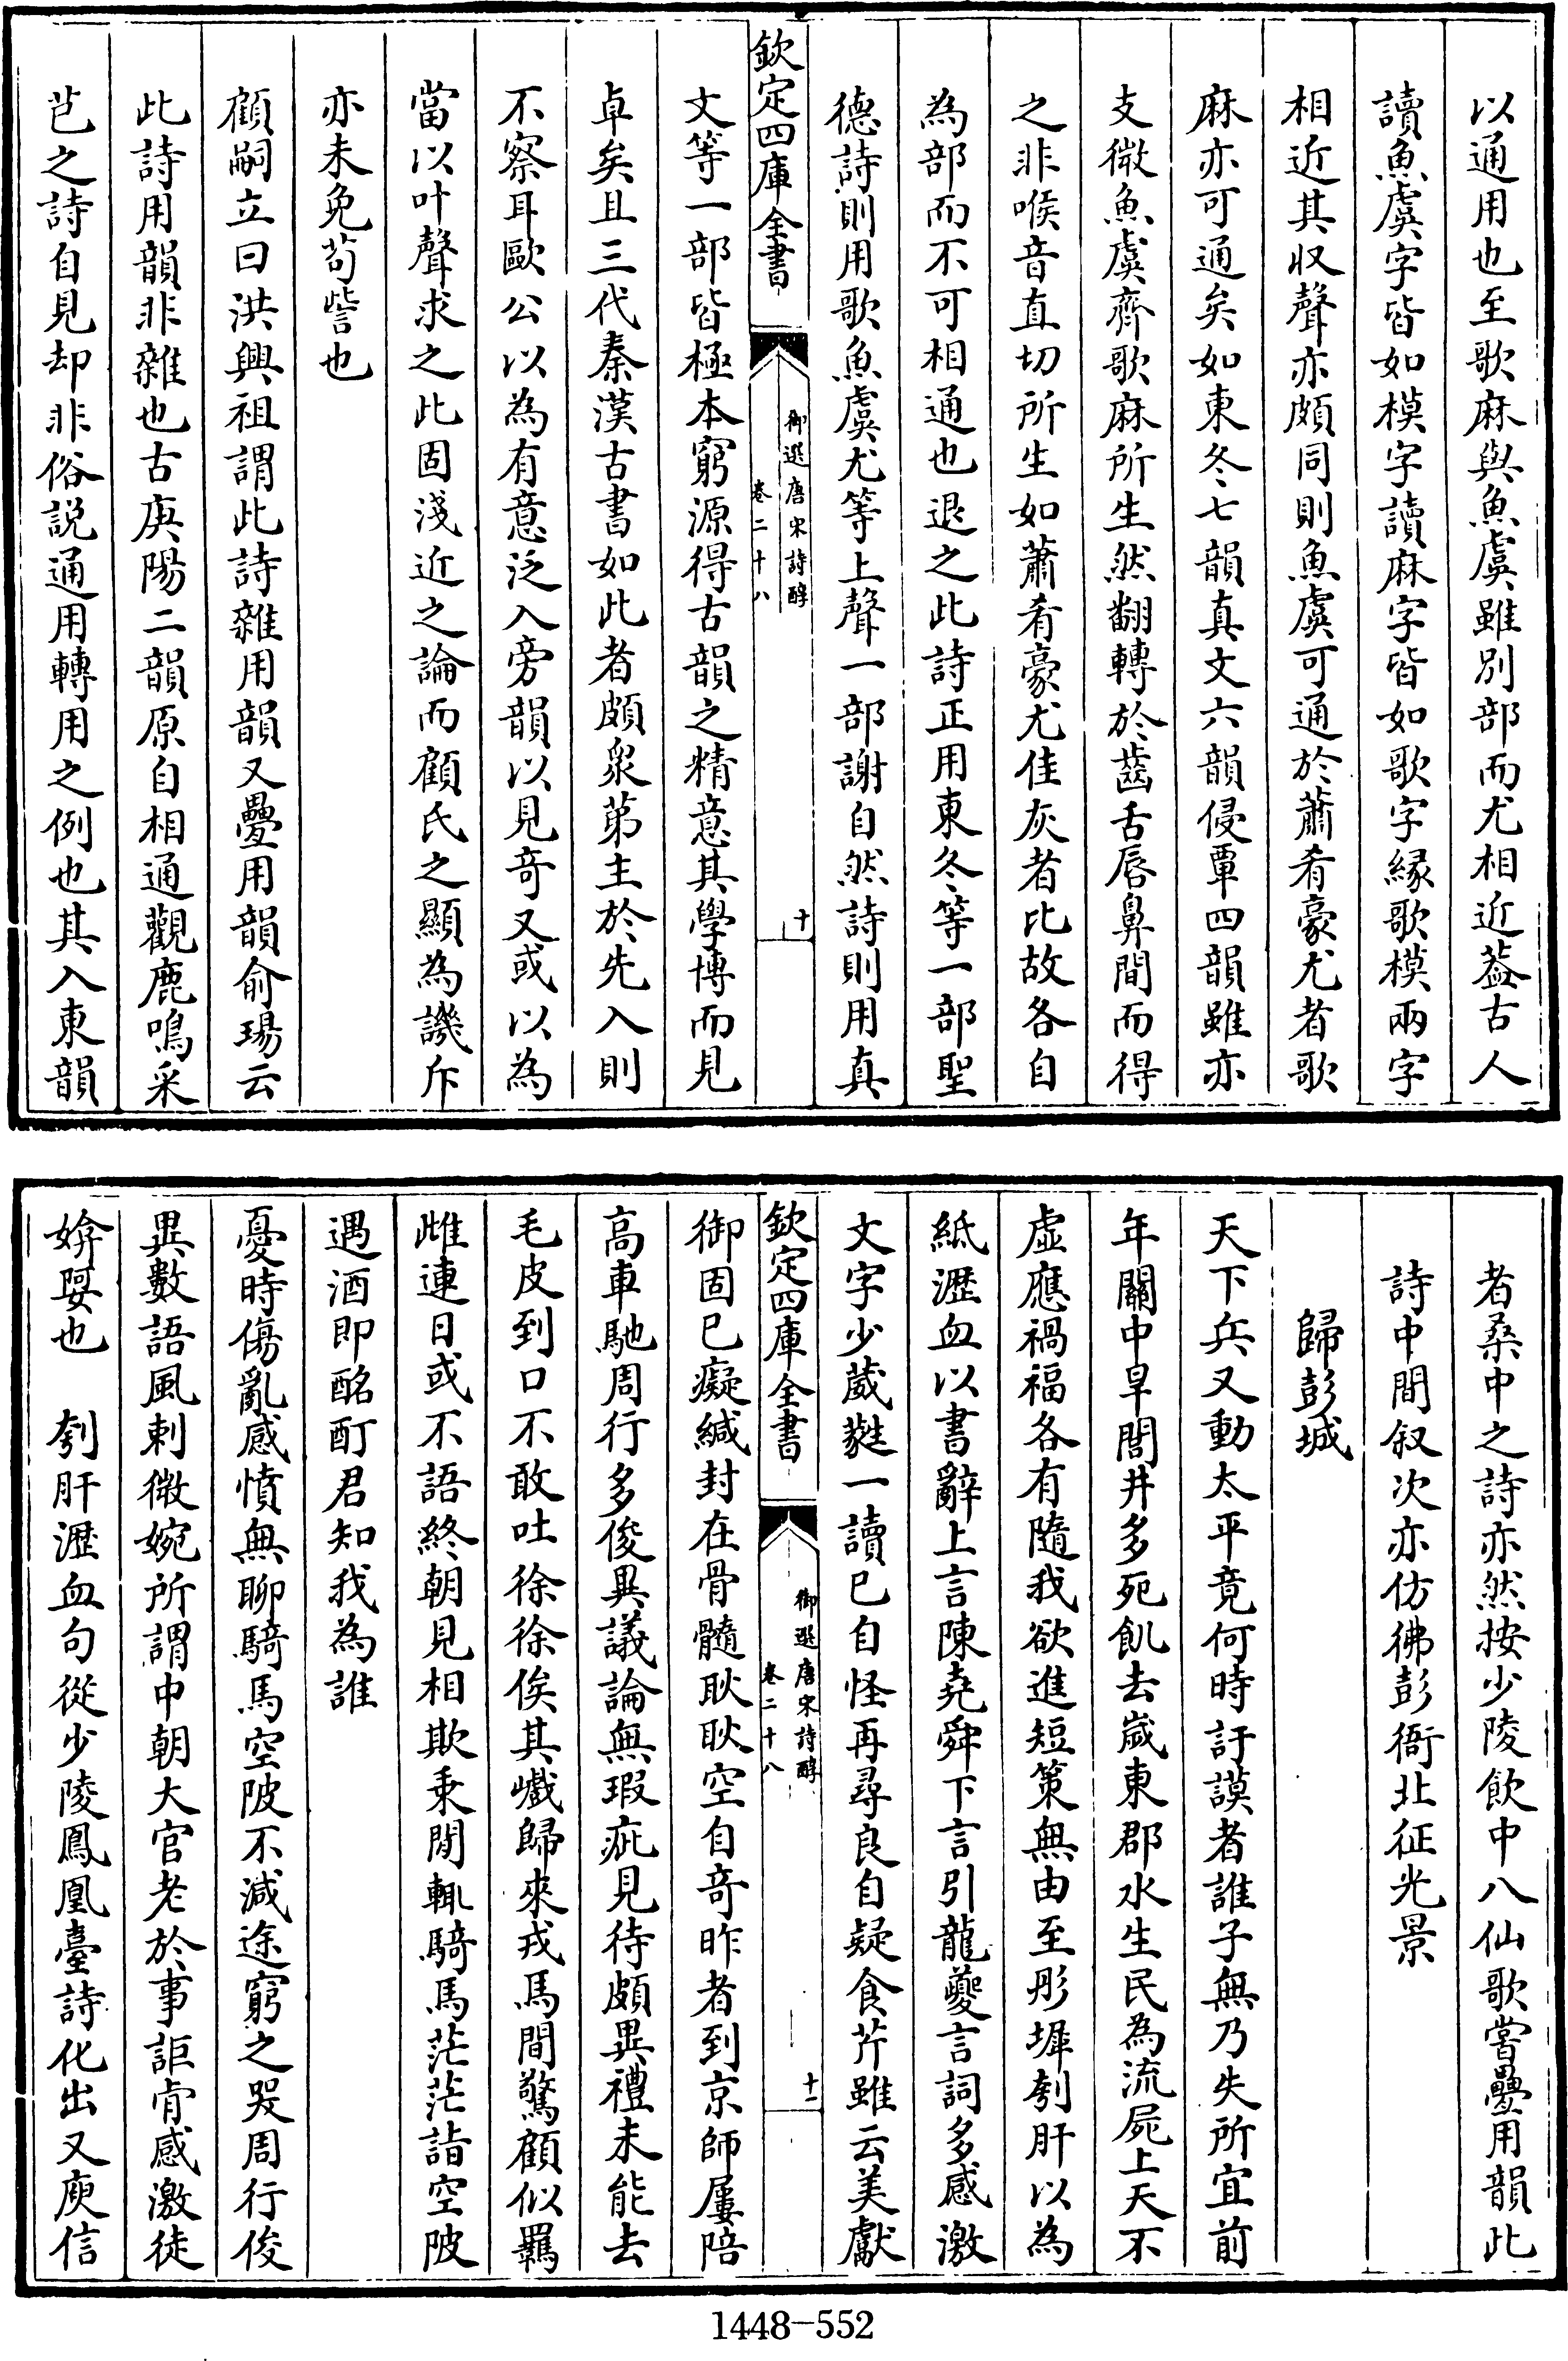 以通用也至歌麻與魚虞雖別部而尤相近葢古人
讀魚虞字皆如模字讀麻字皆如歌字縁歌模兩字
相近其収聲亦頗同則魚虞可通於蕭肴豪尤者歌
麻亦可通矣如東冬七韻真文六韻侵覃四韻雖亦
支微魚虞齊歌麻所生然翻轉於齒舌唇鼻間而得
之非喉音直切所生如蕭肴豪尤佳灰者比故各自
為部而不可相通也退之此詩正用東冬等一部聖
德詩則用歌魚虞尤等上聲一部謝自然詩則用真
欽定四庫全書
御選唐宋詩醇
卷二十八
十
文等一部皆極本窮源得古韻之精意其學博而見
卓矣且三代秦漢古書如此者頗衆第主於先入則
不察耳歐公以為有意泛入旁韻以見奇又或以為
當以叶聲求之此固淺近之論而顧氏之顯為譏斥
亦未免苟訾也
顧嗣立曰洪興祖謂此詩雜用韻又疊用韻俞瑒云
此詩用韻非雜也古庚陽二韻原自相通觀鹿鳴采
芑之詩自見却非俗説通用轉用之例也其入東韻
者桑中之詩亦然按少陵飲中八仙歌嘗疊用韻此
詩中間叙次亦仿彿彭衙北征光景
歸彭城
天下兵又動太平竟何時訏謨者誰子無乃失所宜前
年關中旱閭井多死飢去嵗東郡水生民為流屍上天不
虚應禍福各有隨我欲進短策無由至彤墀刳肝以為
紙瀝血以書辭上言陳堯舜下言引龍夔言詞多感激
文字少葳蕤一讀已自怪再尋良自疑食芹雖云美獻
欽定四庫全書
御選唐宋詩醇
卷二十八
十一
御固已癡緘封在骨髓耿耿空自奇昨者到京師屢陪
高車馳周行多俊異議論無瑕疵見待頗異禮未能去
毛皮到口不敢吐徐徐俟其巇歸來戎馬間驚顧似羈
雌連日或不語終朝見相欺乗閒輒騎馬茫茫詣空陂
遇酒即酩酊君知我為誰
憂時傷亂感憤無聊騎馬空陂不減途窮之哭周行俊
異數語風刺微婉所謂中朝大官老於事詎肯感激徒
媕娿也　刳肝瀝血句從少陵鳳凰臺詩化出又庾信
1448-552